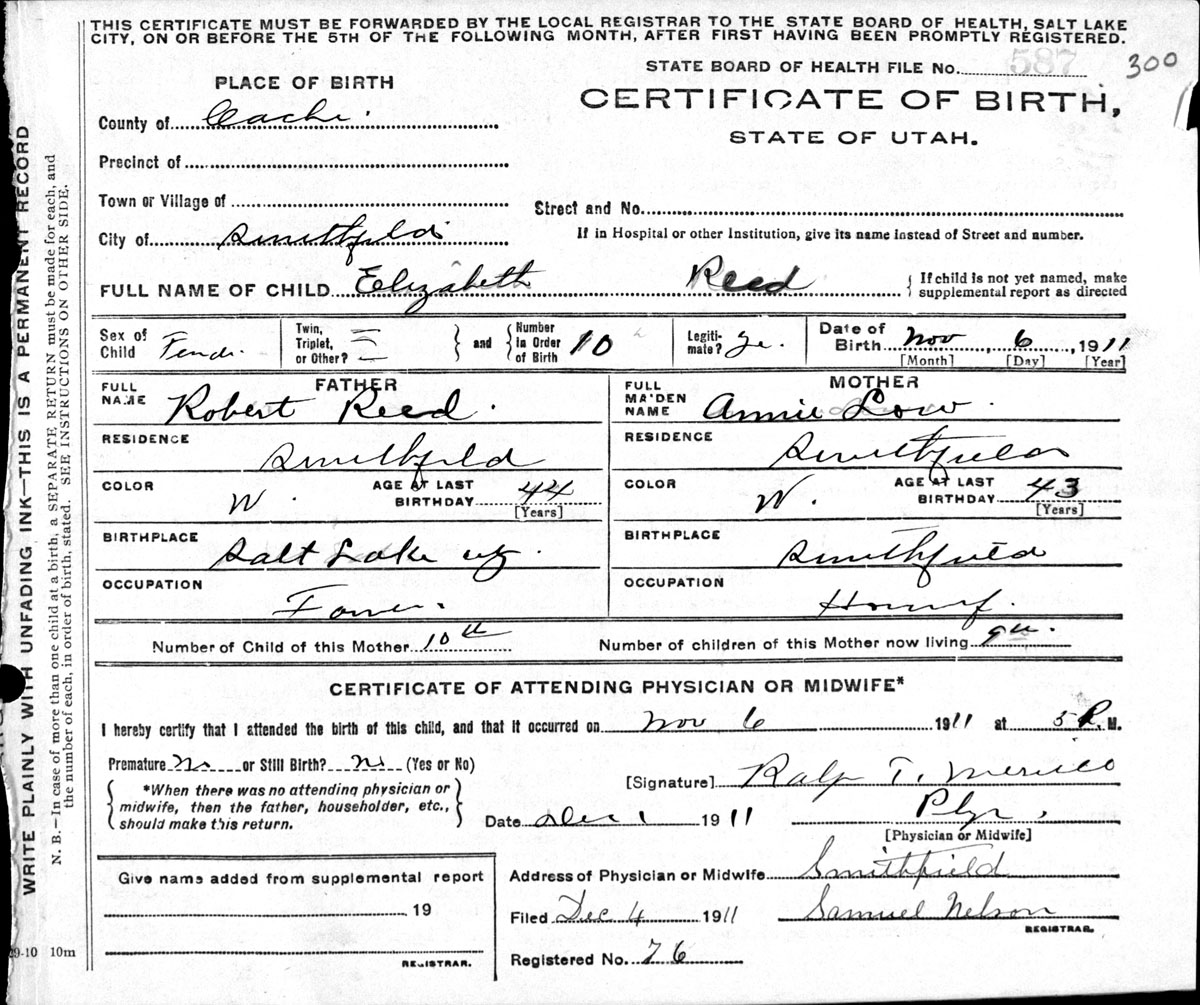 THIS CERTIFICATE MUST BE FORWARDED BY THE LOCAL REGISTRAR TO THE STATE BOARD OF HEALTH, SALT LAKE
CITY, ON OR BEFORE THE 5TH OF THE FOLLOWING MONTH, AFTER FIRST HAVING BEEN PROMPTLY REGISTERED.
STATE BOARD OF HEALTH FILE No. 587 300
PLACE OF BIRTH
CERTIFICATE OF BIRTH,
STATE OF UTAH.
County of Cache.
Precinct of
Town or Village of
Street and No.
City of Smithfield
If in Hospital or other Institution, give its name instead of Street and number.
FULL NAME OF CHILD Elizabeth Reed
If child is not yet named, make
supplemental report as directed
Sex of Child
Twin, Triplet, or Other? and Number in Order of Birth 10
Legitimate?
Date of Birth Nov, 6, 1911
[Month] [Day] [Year]
FATHER
FULL NAME Robert Reed.
RESIDENCE Smithfield
COLOR W. AGE AT LAST BIRTHDAY 44
[Years]
BIRTHPLACE Salt Lake
OCCUPATION
MOTHER
FULL MAIDEN NAME Annie Low.
RESIDENCE Smithfield
COLOR W. AGE AT LAST BIRTHDAY 43
[Years]
BIRTHPLACE Smithfield
OCCUPATION
Number of Child of this Mother 10th
Number of children of this Mother now living
CERTIFICATE OF ATTENDING PHYSICIAN OR MIDWIFE*
I hereby certify that I attended the birth of this child, and that it occurred on Nov 6 1911 at 5 P. M.
Premature No or Still Birth? No (Yes or No)
*When there was no attending physician or
midwife, then the father, householder, etc.,
should make this return.
[Signature] Ralph T.
Date Dec 1 1911
[Physician or Midwife]
Give name added from supplemental report
19
REGISTRAR.
Address of Physician or Midwife Smithfield
Filed Dec 4 1911 Samuel Nelson
REGISTRAR.
Registered No. 76
WRITE PLAINLY WITH UNFADING INK—THIS IS A PERMANENT RECORD
N. B.—In case of more than one child at a birth, a SEPARATE RETURN must be made for each, and
the number of each, in order of birth, stated. SEE INSTRUCTIONS ON OTHER SIDE.
29-10 10m